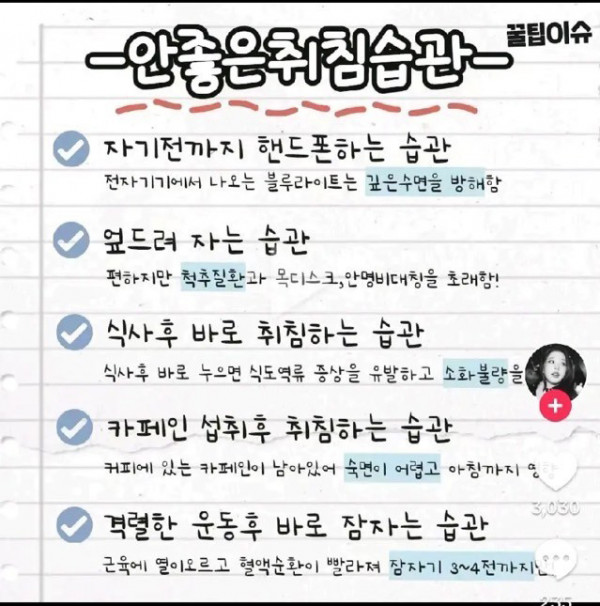 꿀팁이슈
-안좋은취침습관-
자기전까지 핸드폰하는 습관
전자기기에서 나오는 블루라이트는 깊은수면을 방해함
엎드려 자는 습관
편하지만 척추질환과 목디스크,안명비대칭을 초래함!
식사후 바로 취침하는 습관
식사후 바로 누으면 식도역류 증상을 유발하고 소화불량을
카페인 섭취후 취침하는 습관
커피에 있는 카페인이 남아있어 숙면이 어렵고 아침까지
3,030
격렬한 운동후 바로 잠자는 습관
근육에 열이오르고 혈액순환이 빨라져 잠자기 3~4전까지